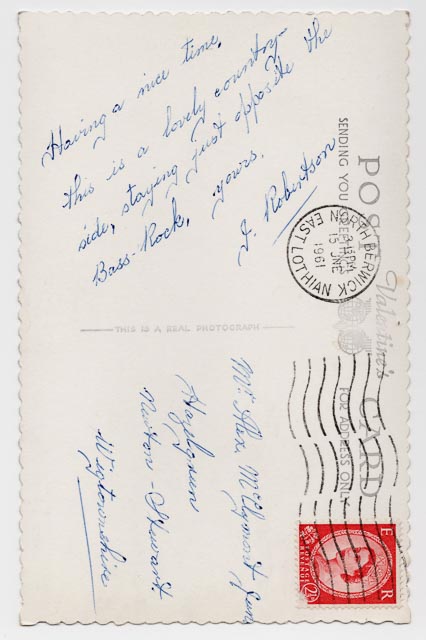 POST CARD
Valentine's
SENDING YOU
FOR ADDRESS ONLY
Having a nice time,
this is a lovely country-
side, staying just opposite the
Bass-Rock,
yours,
J. Robertson
THIS IS A REAL PHOTOGRAPH
NORTH BERWICK
15 PM
15 JNE
1961
EAST LOTHIAN
E R
POSTAGE
REVENUE
2½
Mr. Alex. McClymont Junr
Hazelgreen
Newton-Stewart.
Wigtownshire